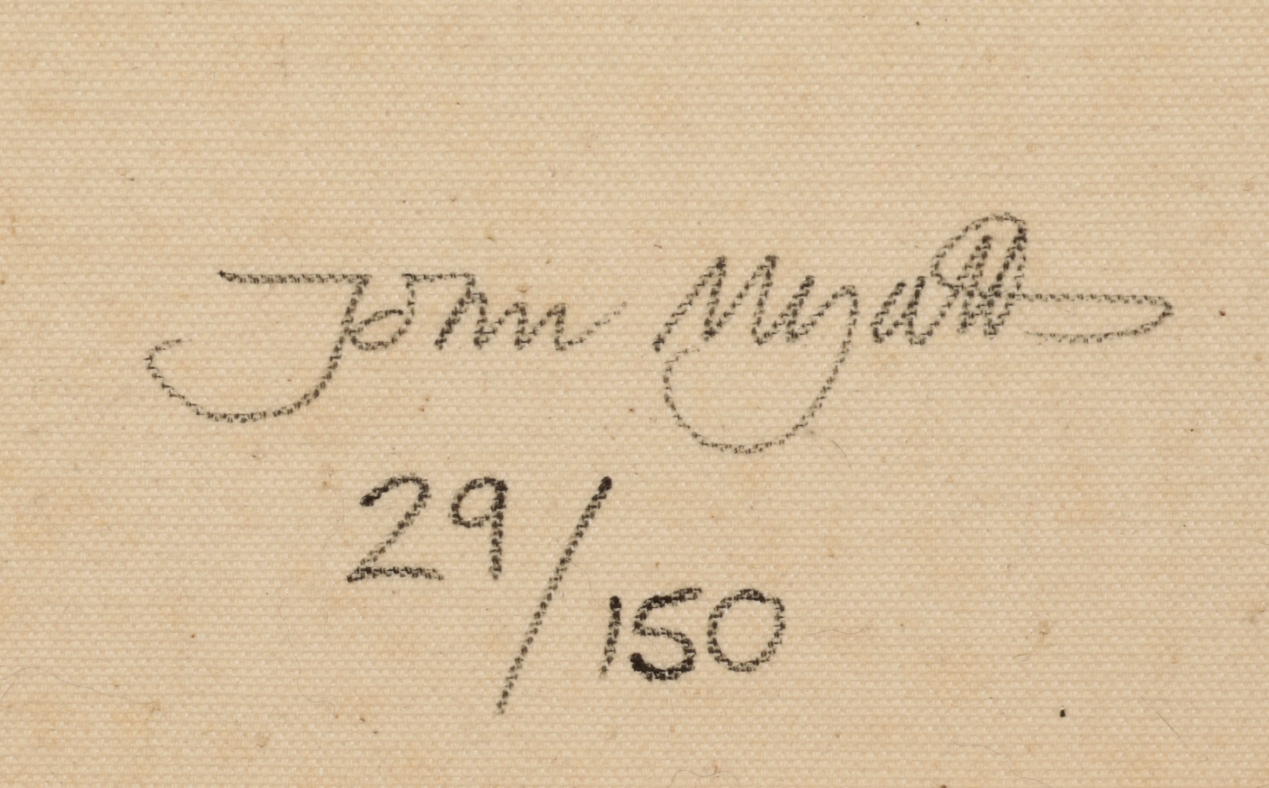 John Myatt
29/150